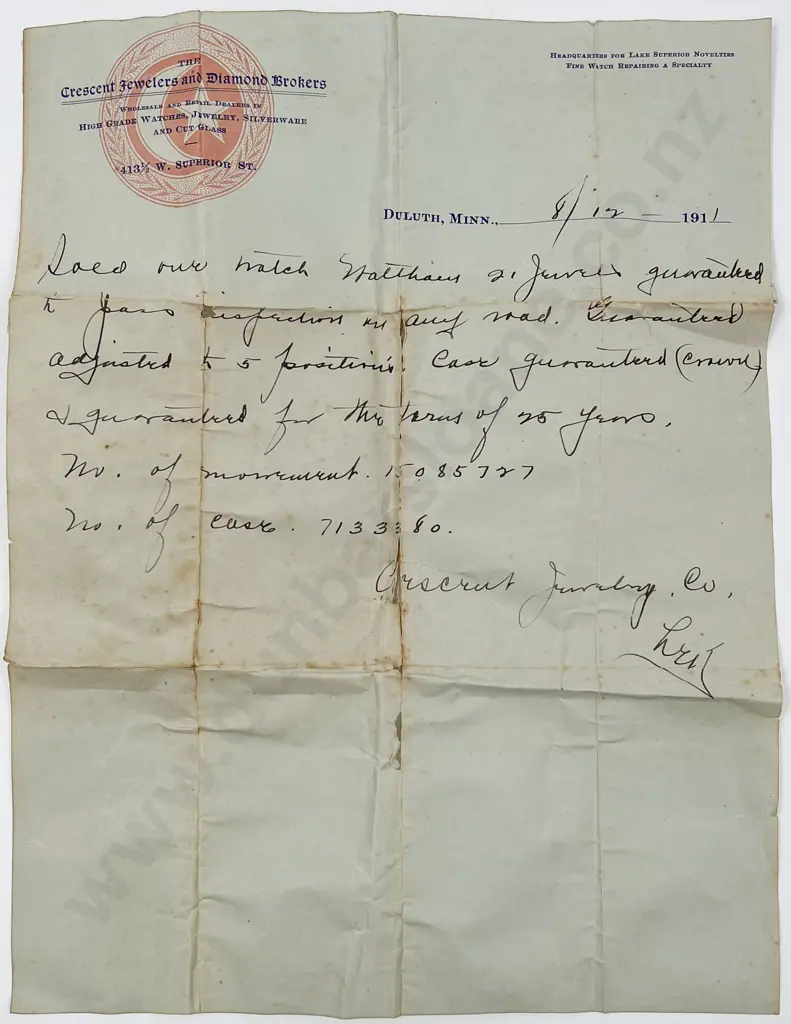 THE
Crescent Jewelers and Diamond Brokers
WHOLESALE AND RETAIL DEALERS IN
HIGH GRADE WATCHES, JEWELRY, SILVERWARE
AND CUT GLASS
413½ W. SUPERIOR ST.
HEADQUARTERS FOR LAKE SUPERIOR NOVELTIES
FINE WATCH REPAIRING A SPECIALTY
DULUTH, MINN., 8/12 - 1911
Sold one watch Waltham 21 Jewels guaranteed
to pass inspection on any road. Guaranteed
adjusted to 5 positions. Case guaranteed (Crown)
& guaranteed for the term of 25 years.
No. of movement. 15085727
No. of case. 7133380.
Crescent Jewelry. Co.